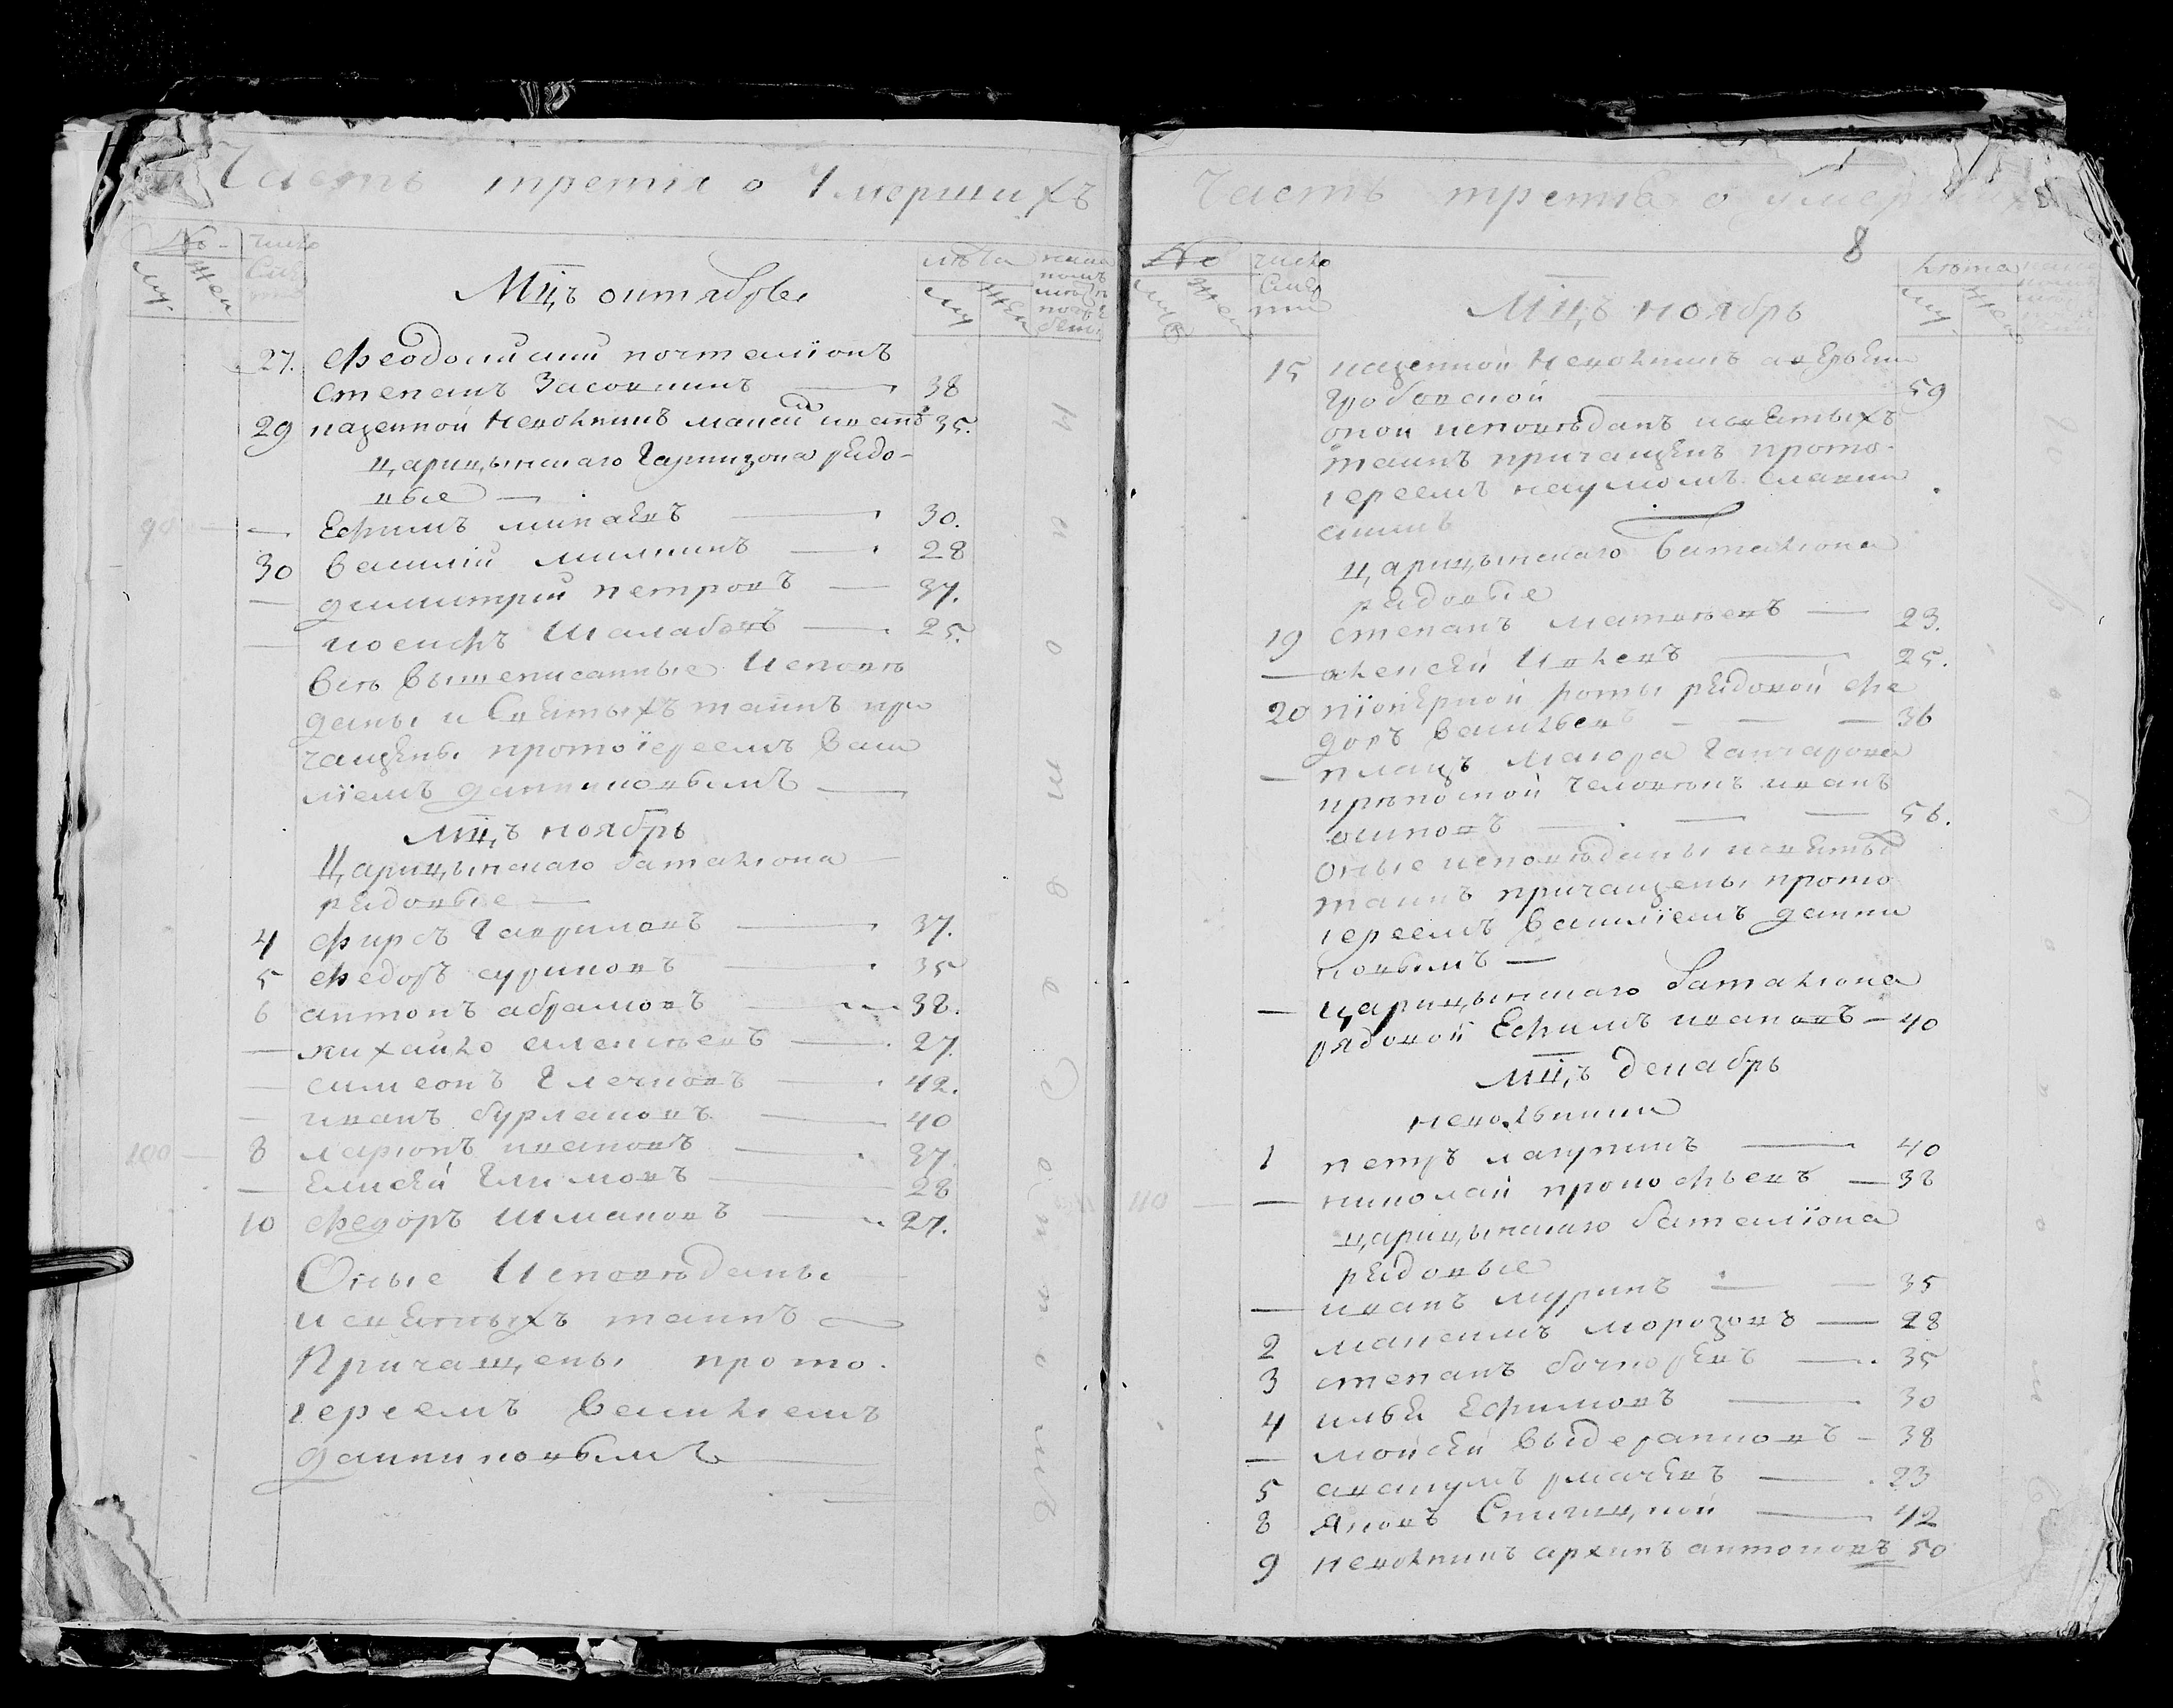 Часть третія о Умершихъ
№
число
Смер
ти
лѣта
Му.
Жен
Му
Жен
Мц҃ъ октября
27. Феодосискій почталіонъ
Степанъ Засовкинъ — 38
29 казенной Неволникъ Максій иванъ 35.
царицынскаго Гарнизона рядо-
вые —
90 — — Ефимъ минаевъ — 30.
30 василій милкинъ — 28
— димитрій петровъ — 37.
— иосифъ Шалабовъ — 25.
всѣ вышеписанные Исповѣ
даны и Святыхъ таинъ при
чащены протоіереемъ васи
ліемъ данниковымъ —
Мц҃ъ ноябрь
Царицынскаго баталиона
рядовые —
4 Фирсъ Гавриловъ — 37.
5 Федоръ суриковъ — 35
6 антонъ абрамовъ — 38.
— михайло алексѣевъ — 27.
— симеонъ Глечковъ — 42.
— иванъ бурлаковъ — 40
100 — 8 ларіонъ ивановъ — 37
— Елисѣй Климовъ — 28
10 федоръ Шмаковъ — 27.
Оные Исповѣданы
и святыхъ таинъ
Причащены прото
іереемъ василиемъ
данниковымъ
Часть третія о умершихъ
8
№
число
Смер
ти
лѣта
Му
Жен
Мц҃ъ ноябрь
15 казенной Неволникъ аверьян
Гробовской — 59
оной исповѣданъ исвятыхъ
таинъ причащенъ прото-
іереемъ наумомъ славин
скимъ
царицынскаго баталиона
рядовые
19 степанъ матвѣевъ — 23.
— алексѣй Ивлевъ — 25.
20 піонерной роты рядовой фе
доръ васильевъ — — — 36
— плацъ маіора Ганчарова
крѣпостной человѣкъ иванъ
осиповъ — — — 56.
оные исповѣданы исвятых
таинъ причащены прото
іереемъ василіемъ данни
ковымъ —
— царицынскаго баталиона
рядовой Ефимъ ивановъ — 40
Мц҃ъ декабрь
невольники
1 петръ лагунинъ — 40
110 — — николай прокофьевъ — 38
царицынскаго баталіона
рядовые
— иванъ муринъ — — 35
2 максимъ морозовъ — 28
3 степанъ бочкаревъ — 35
4 илья Ефимовъ — 30
— моисей — 38
5 авакумъ — 23
8 Яковъ — 42
9 неволникъ архипъ антоновъ 50